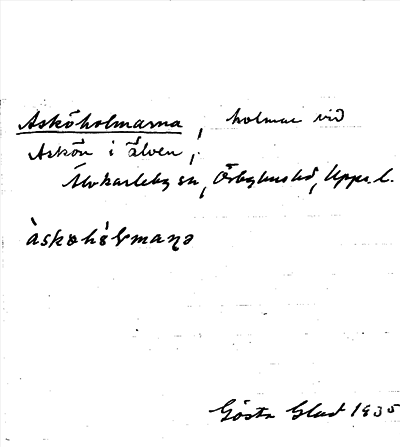 Asköholmarna, holmar vid
Askön i älven,
Älvkarleby sn, Örbyhus hd, Upps. l.
àskəhə̀ɭmaɳə
Gösta Glad 1935